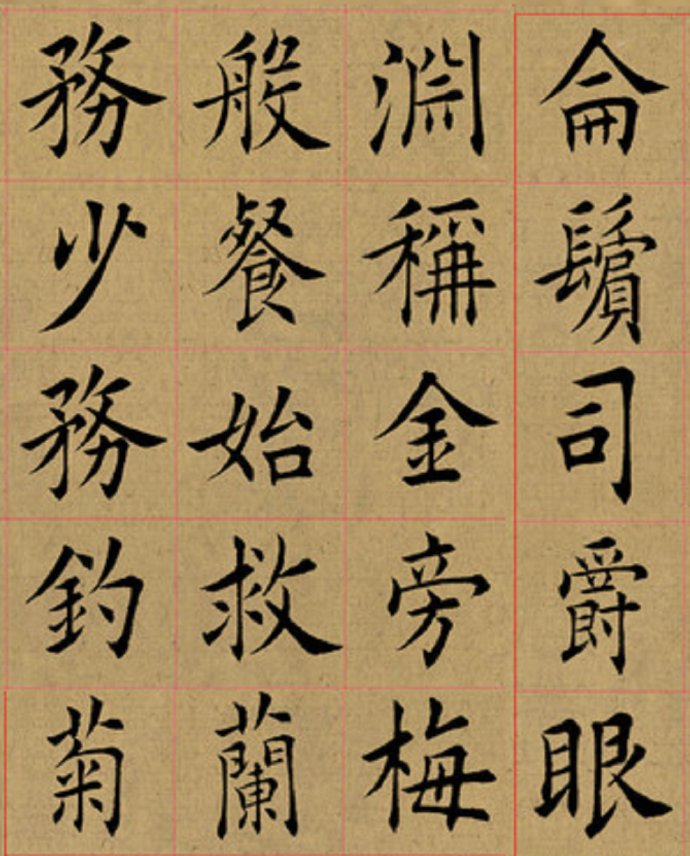 侖鬢司爵眼
淵稱金旁梅
般餐始救蘭
務少務釣菊